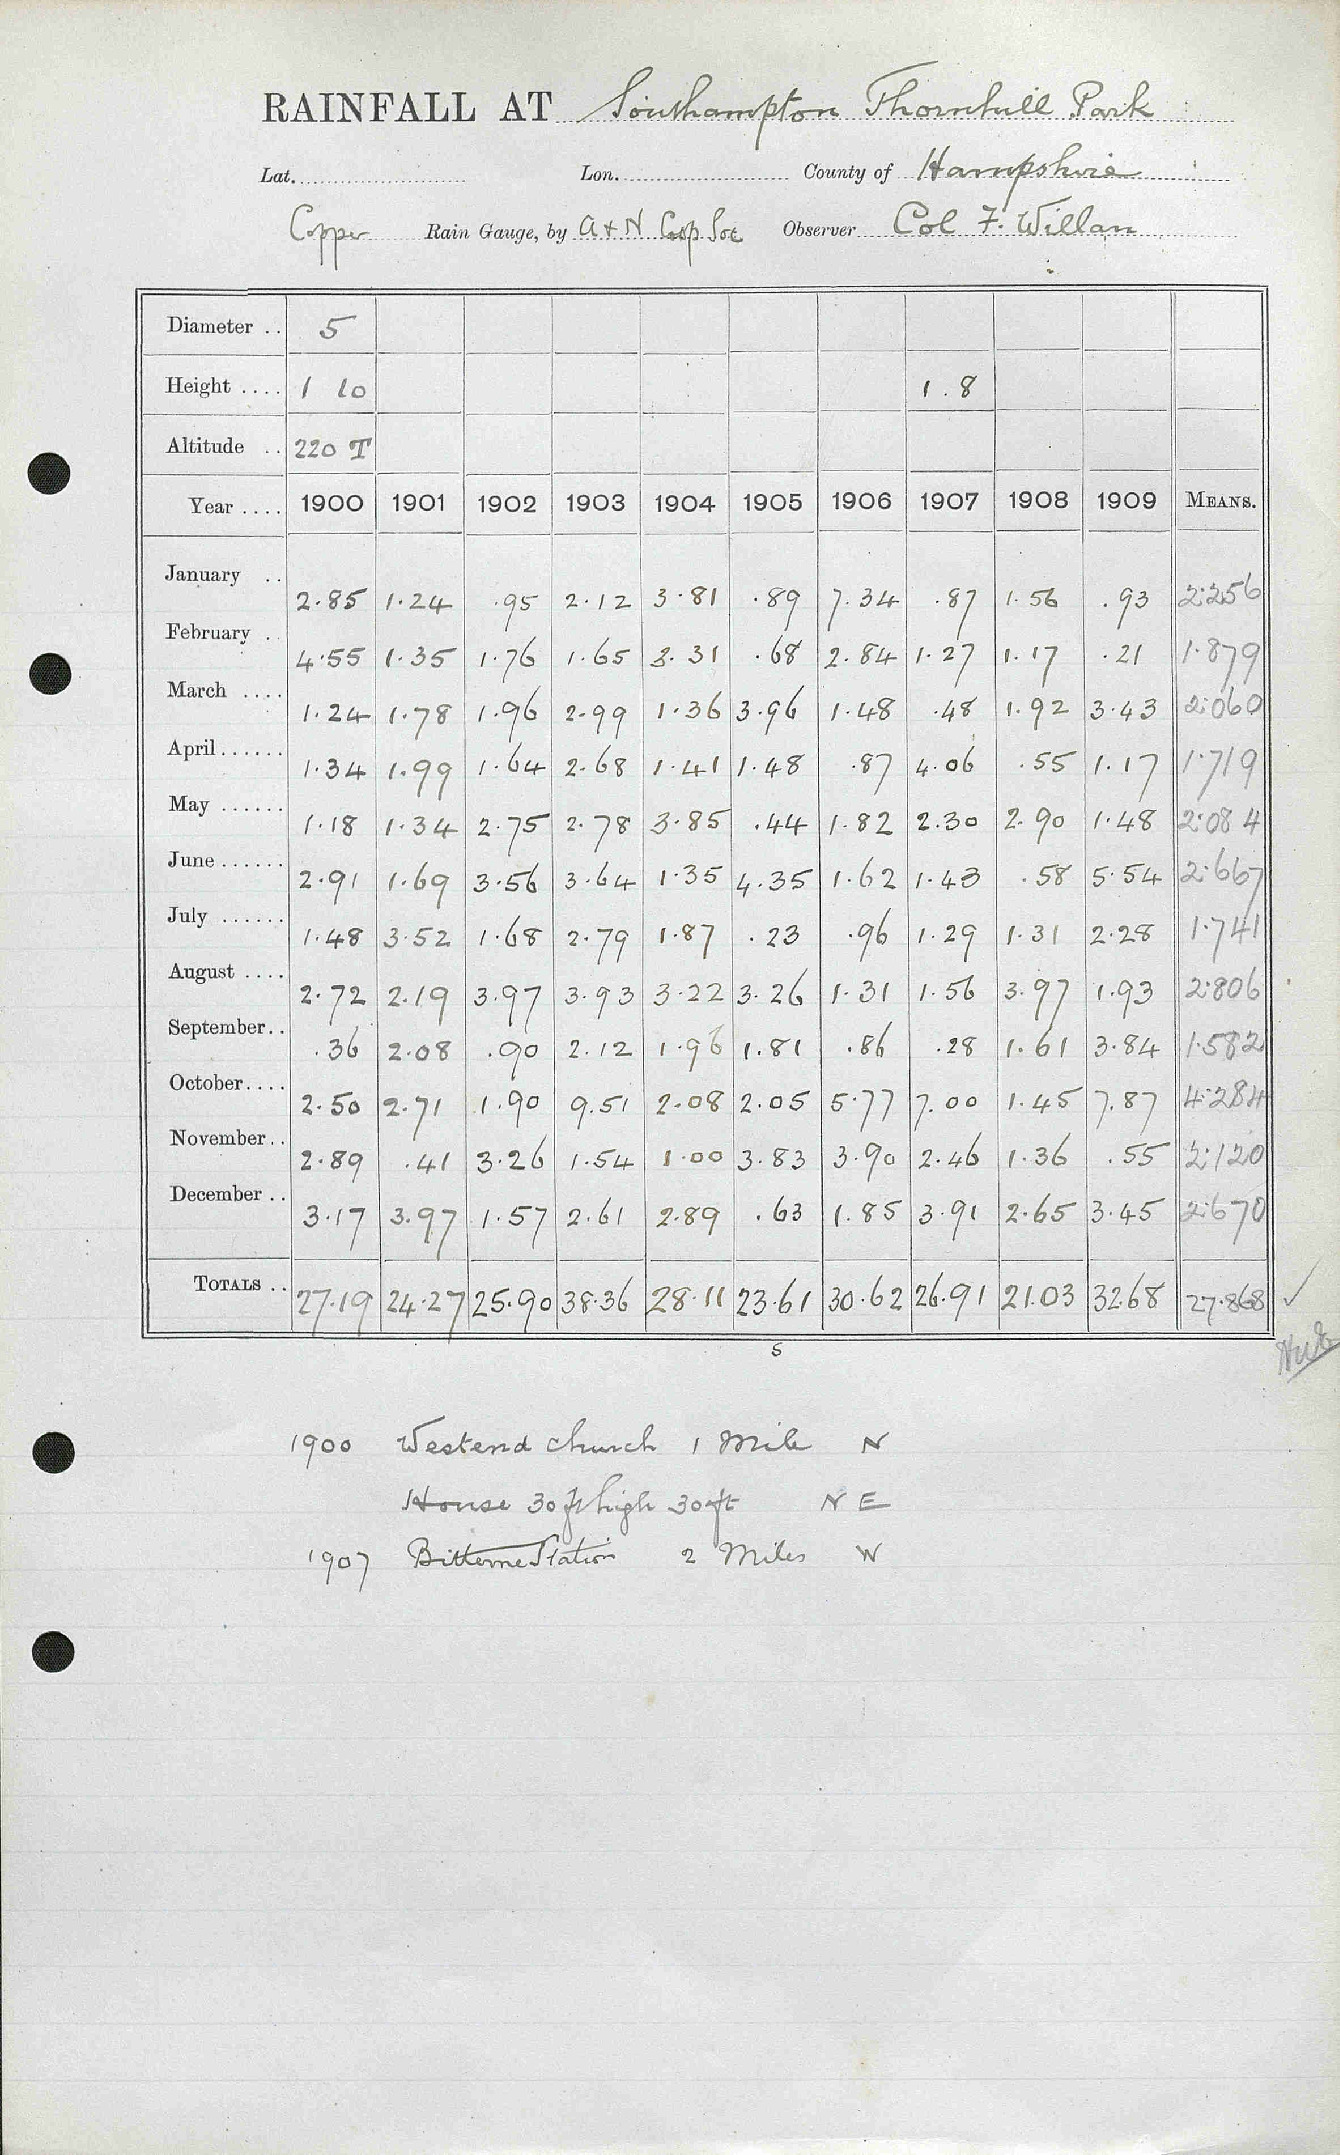 RAINFALL AT Southampton Thornhill Park
Lat. Lon. County of Hampshire
Copper Rain Gauge, by A & N Coop Soc Observer Col F. Willan
Diameter .. 5
Height .... 1 10 1.8
Altitude .. 220 T
Year .... 1900 1901 1902 1903 1904 1905 1906 1907 1908 1909 MEANS.
January .. 2.85 1.24 .95 2.12 3.81 .89 7.34 .87 1.56 .93 2.256
February .. 4.55 1.35 1.76 1.65 3.31 .68 2.84 1.27 1.17 .21 1.879
March .... 1.24 1.78 1.96 2.99 1.36 3.96 1.48 .48 1.92 3.43 2.060
April ...... 1.34 1.99 1.64 2.68 1.41 1.48 .87 4.06 .55 1.17 1.719
May ...... 1.18 1.34 2.75 2.78 3.85 .44 1.82 2.30 2.90 1.48 2.084
June ...... 2.91 1.69 3.56 3.64 1.35 4.35 1.62 1.43 .58 5.54 2.667
July ...... 1.48 3.52 1.68 2.79 1.87 .23 .96 1.29 1.31 2.28 1.741
August .... 2.72 2.19 3.97 3.93 3.22 3.26 1.31 1.56 3.97 1.93 2.806
September .. .36 2.08 .90 2.12 1.96 1.81 .86 .28 1.61 3.84 1.582
October .... 2.50 2.71 1.90 9.51 2.08 2.05 5.77 7.00 1.45 7.87 4.284
November .. 2.89 .41 3.26 1.54 1.00 3.83 3.90 2.46 1.36 .55 2.120
December .. 3.17 3.97 1.57 2.61 2.89 .63 1.85 3.91 2.65 3.45 2.670
TOTALS .. 27.19 24.27 25.90 38.36 28.11 23.61 30.62 26.91 21.03 32.68 27.868
5
1900 Westend church 1 Mile N
House 30 ft high 30 ft N E
1907 Bitterne Station 2 Miles W